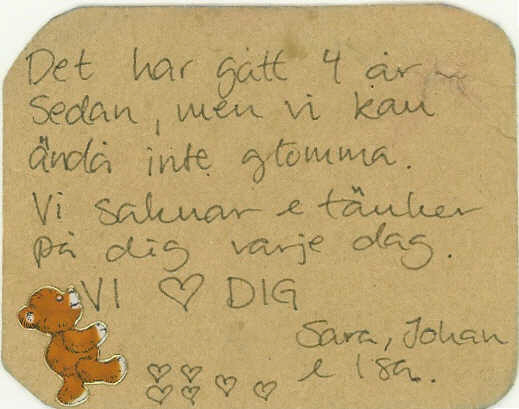 Det har gått 4 år
Sedan, men vi kan
ändå inte glömma.
Vi saknar & tänker
på dig varje dag.
VI ♡ DIG
Sara, Johan
& Isa.